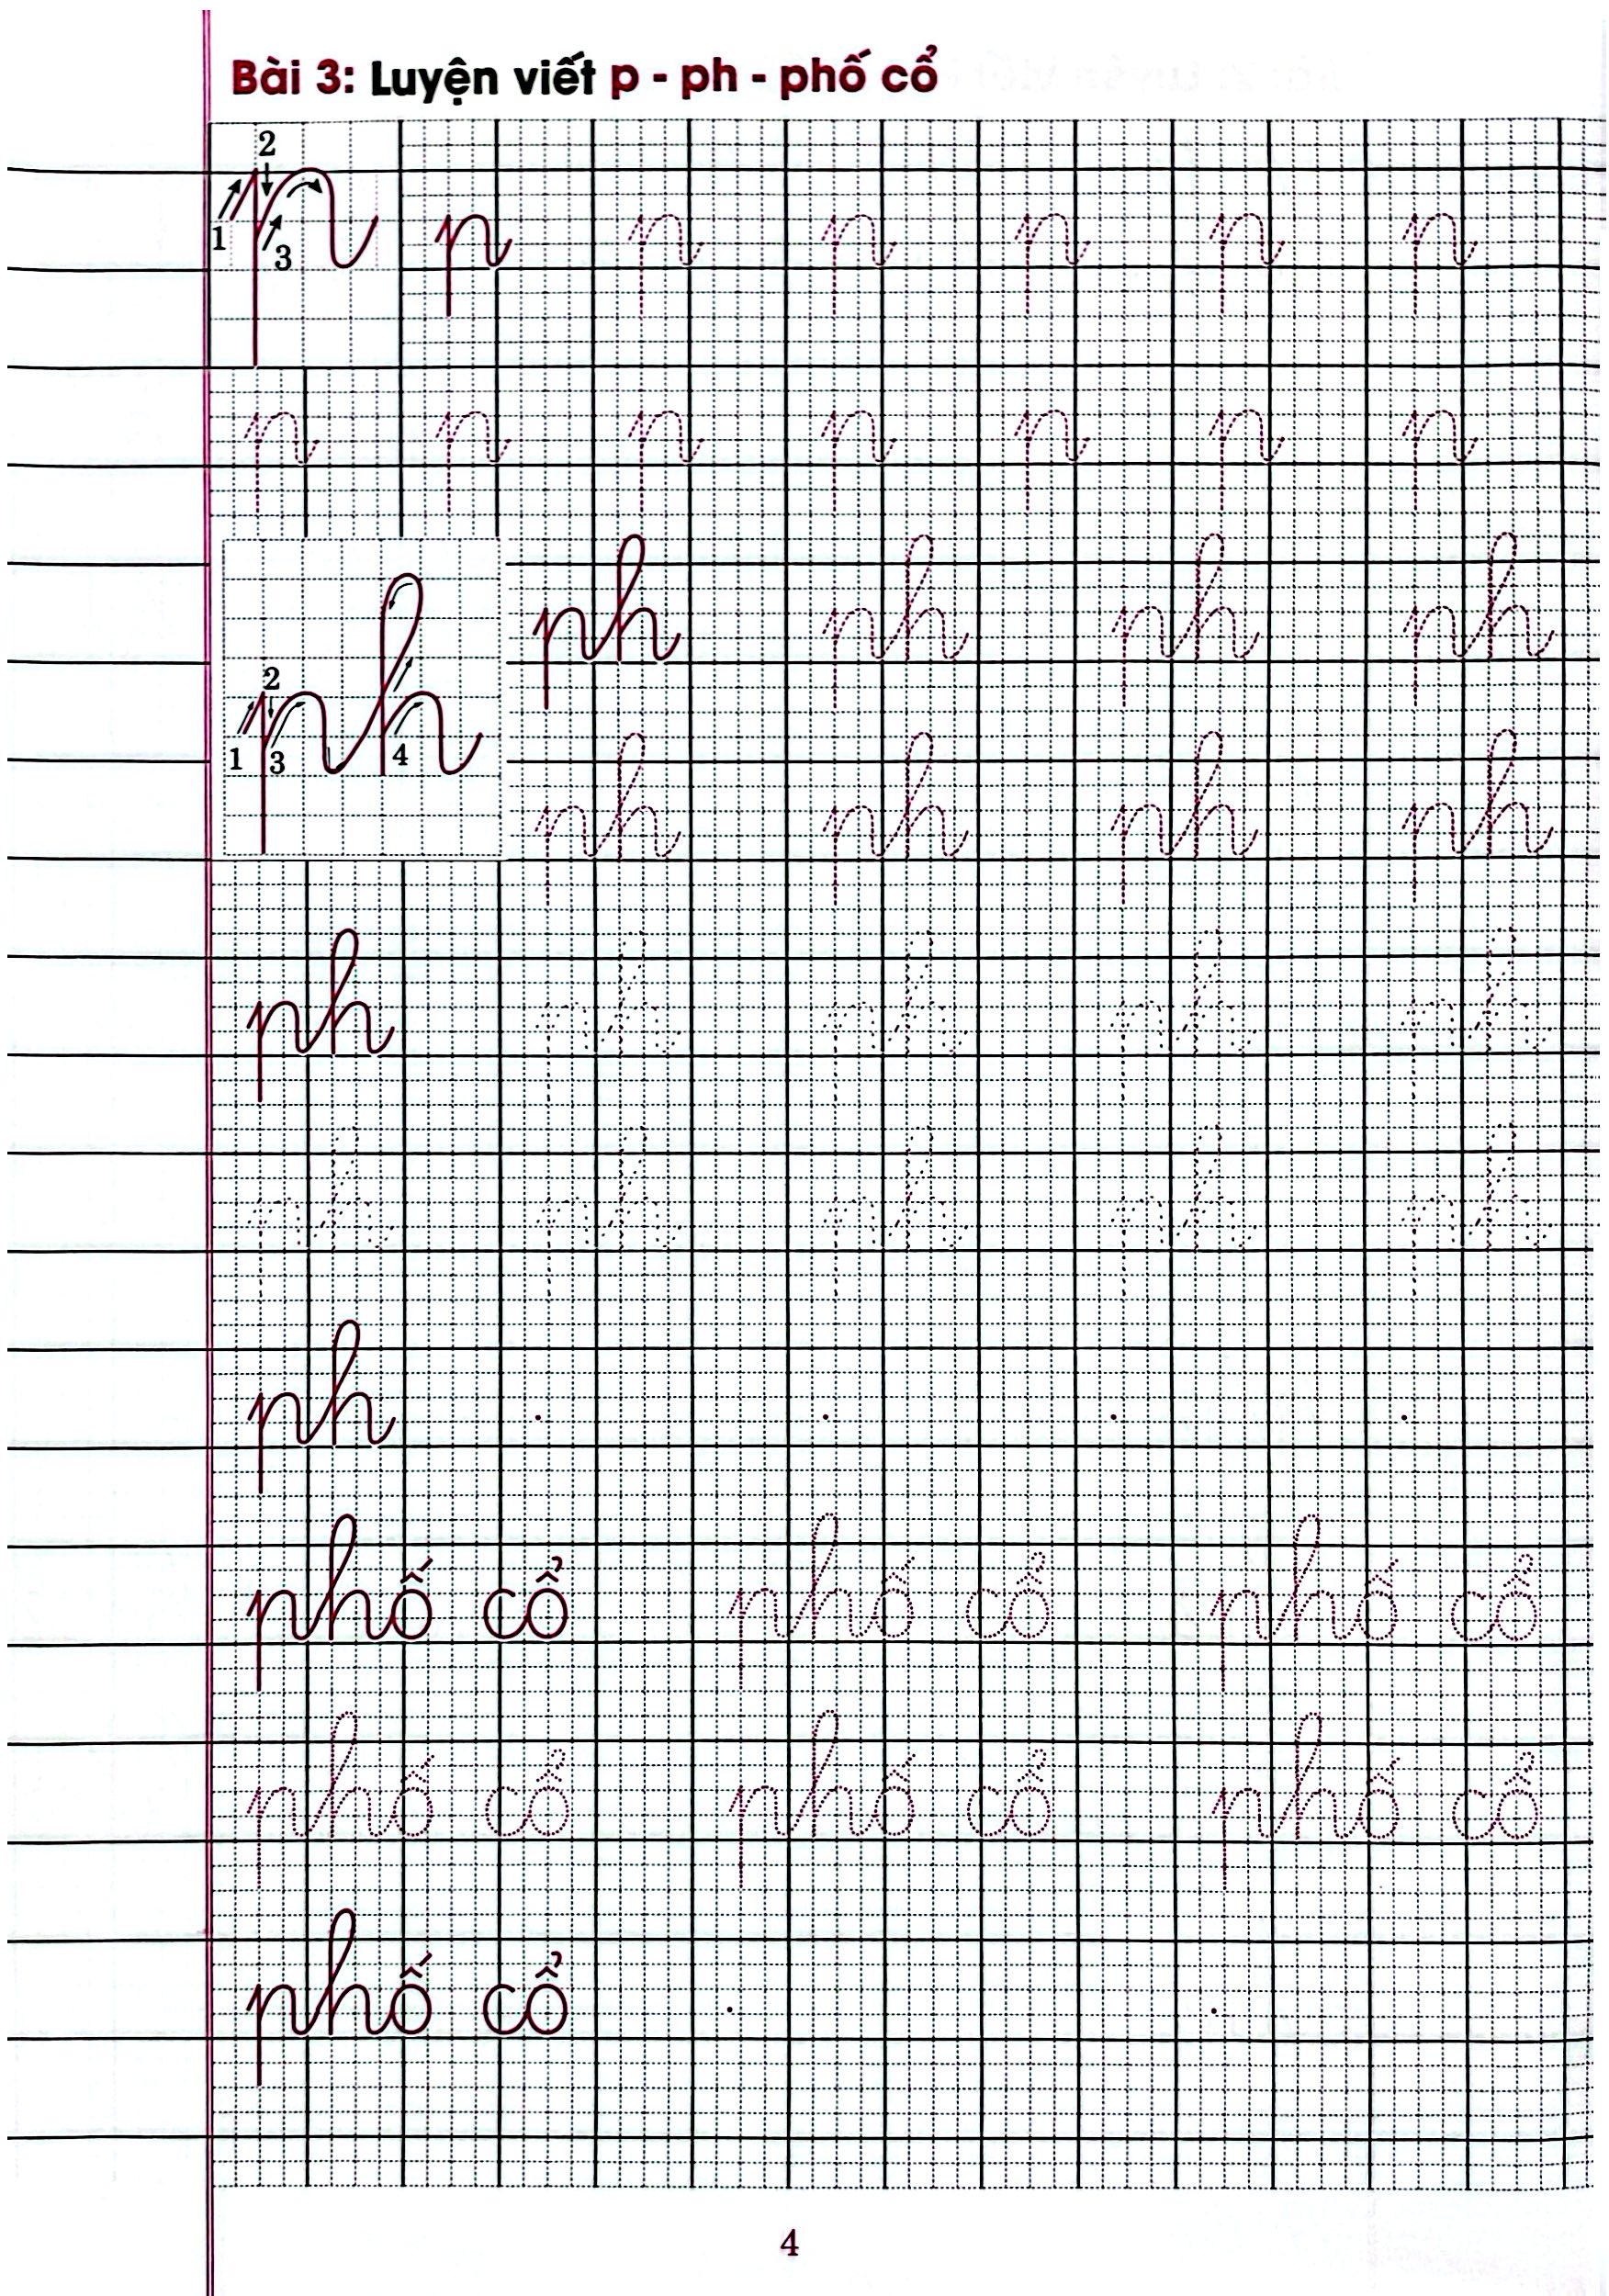 Bài 3: Luyện viết p - ph - phố cổ
2
1
3
p p p p p p p
p p p p p p p
ph ph ph ph
2
1 3 4
ph
ph ph ph ph
ph ph ph ph ph
ph ph ph ph ph
ph . . . .
phố cổ phố cổ phố cổ
phố cổ phố cổ phố cổ
phố cổ . .
4